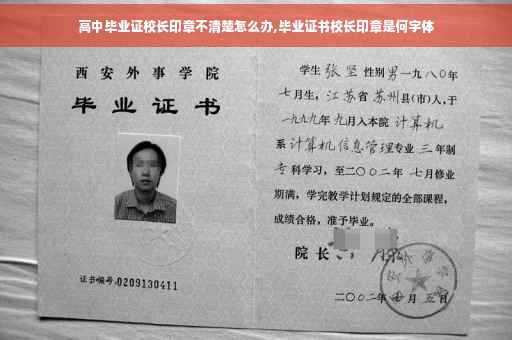 高中毕业证校长印章不清楚怎么办,毕业证书校长印章是何字体
西安外事学院
毕业证书
证书编号:0209130411
学生 张坚 性别男 一九八〇年
七月生, 江苏省 苏州县(市)人,于
一九九九年 九月入本院 计算机
系 计算机信息管理专业 三 年制
专科学习, 至二〇〇二年 七月修业
期满, 学完教学计划规定的全部课程,
成绩合格, 准予毕业。
院长
二〇〇二年 月 五日